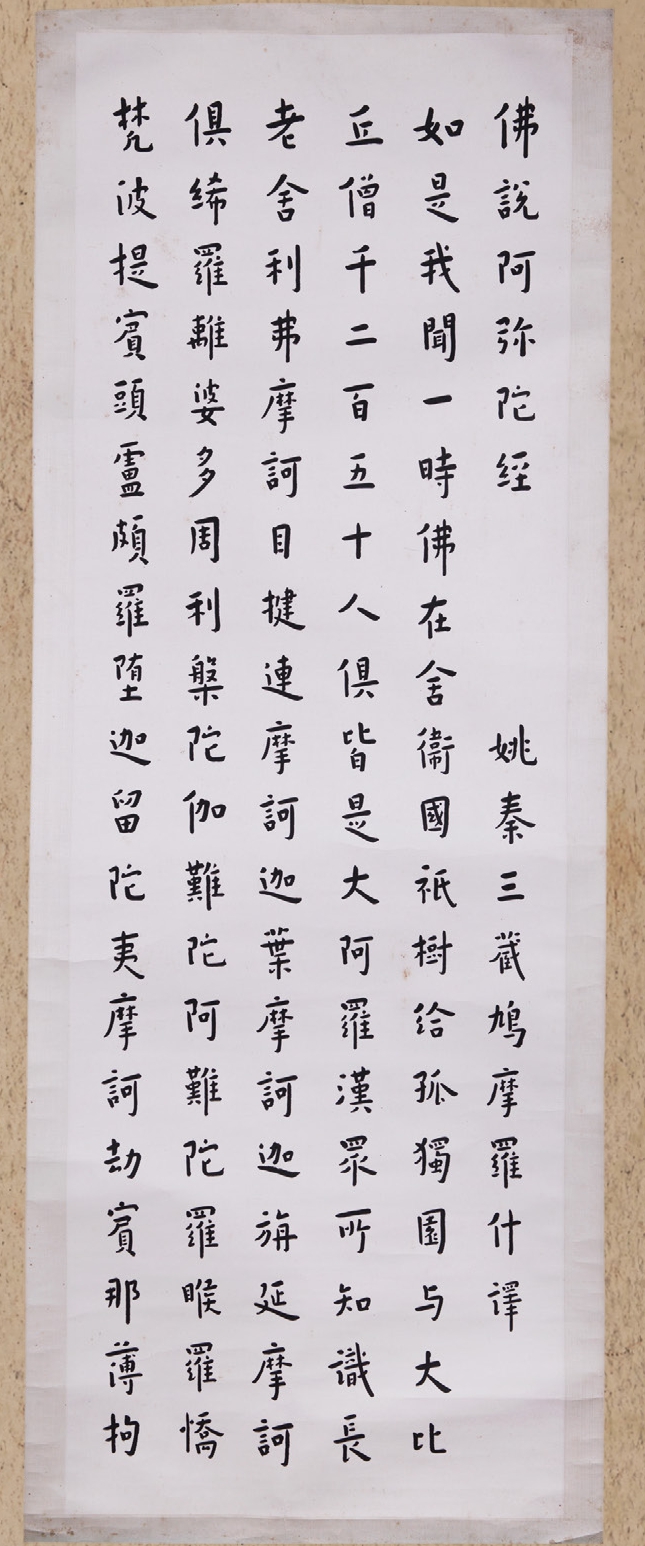 佛說阿弥陀经 姚秦三藏鸠摩羅什譯
如是我聞一時佛在舍衛國祇樹给孤獨園与大比
丘僧千二百五十人俱皆是大阿羅漢眾所知識長
老舍利弗摩訶目揵連摩訶迦葉摩訶迦旃延摩訶
俱絺羅離婆多周利槃陀伽難陀阿難陀羅睺羅憍
梵波提賓頭盧頗羅堕迦留陀夷摩訶劫賓那薄拘